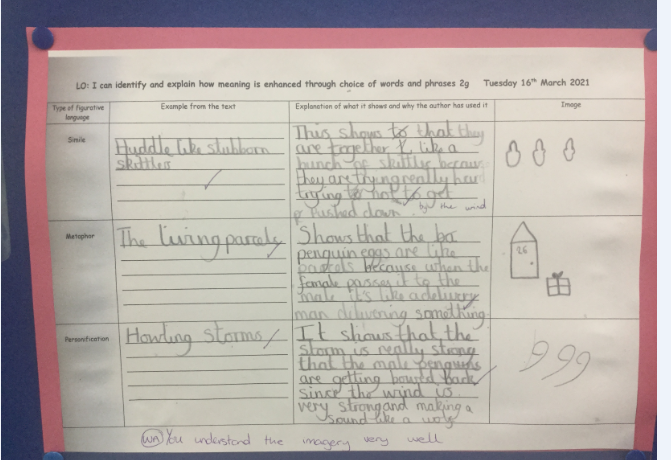 LO: I can identify and explain how meaning is enhanced through choice of words and phrases 2g Tuesday 16th March 2021
Type of figurative language
Example from the text
Explanation of what it shows and why the author has used it
Image
Simile
Huddle like stubborn
skittles
This shows to that they
are together & like a
bunch of skittls becaus
they are trying really hard
trying to not to get
pushed down. by the wind
Metaphor
The living parcels
Shows that the
penguin eggs are like
parcels because when the
female passes it to the
male it's like a delivery
man delivering something
26
Personification
Howling storms
It shows that the
storm is really strong
that the male penguins
are getting back
since the wind is
very strong and making a
sound like a
WW You understand the imagery very well